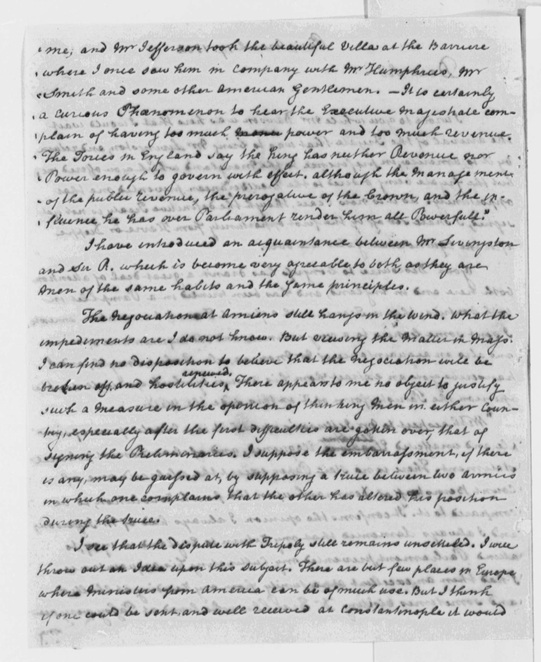 me, and Mr Jefferson took the beautiful Villa at the Barriere
where I once saw him in company with Mr Humphries, Mr
Smith and some other American Gentlemen. – It is certainly
a curious Phænomenon to hear the Executive Magistrate com-
plain of having too much power and too much Revenue.
The Tories in England say the King has neither Revenue nor
Power enough to govern with effect, although the Management
of the public Revenue, the prerogative of the Crown, and the in-
fluence he has over Parliament render him all Powerfull.
I have introduced an acquaintance between Mr Livingston
and Sir R. which is become very agreeable to both, as they are
Men of the same habits and the same principles.
The Negociation at Amiens still hangs in the wind. What the
impediments are I do not know. But viewing the Matter in Mass
I can find no disposition to believe that the Negociation will be
broken off, and hostilities renewed. There appears to me no object to justify
such a measure in the opinion of thinking Men in either Coun-
try, especially after the first difficulties are gotten over, that of
signing the Preliminaries. I suppose the embarrassment, if there
is any, may be guessed at, by supposing a truce between two armies
in which one complains that the other has altered his position
during the truce.
I see that the dispute with Tripoly still remains unsettled. I will
throw out an Idea upon this subject. There are but few places in Europe
where Ministers from America can be of much use. But I think
if one could be sent, and well received at Constantinople it would